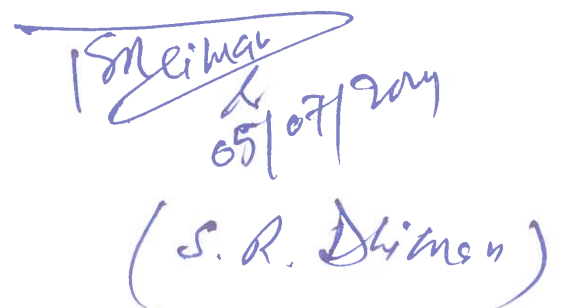 SRDhiman
05/07/2024
(S. R. Dhiman)